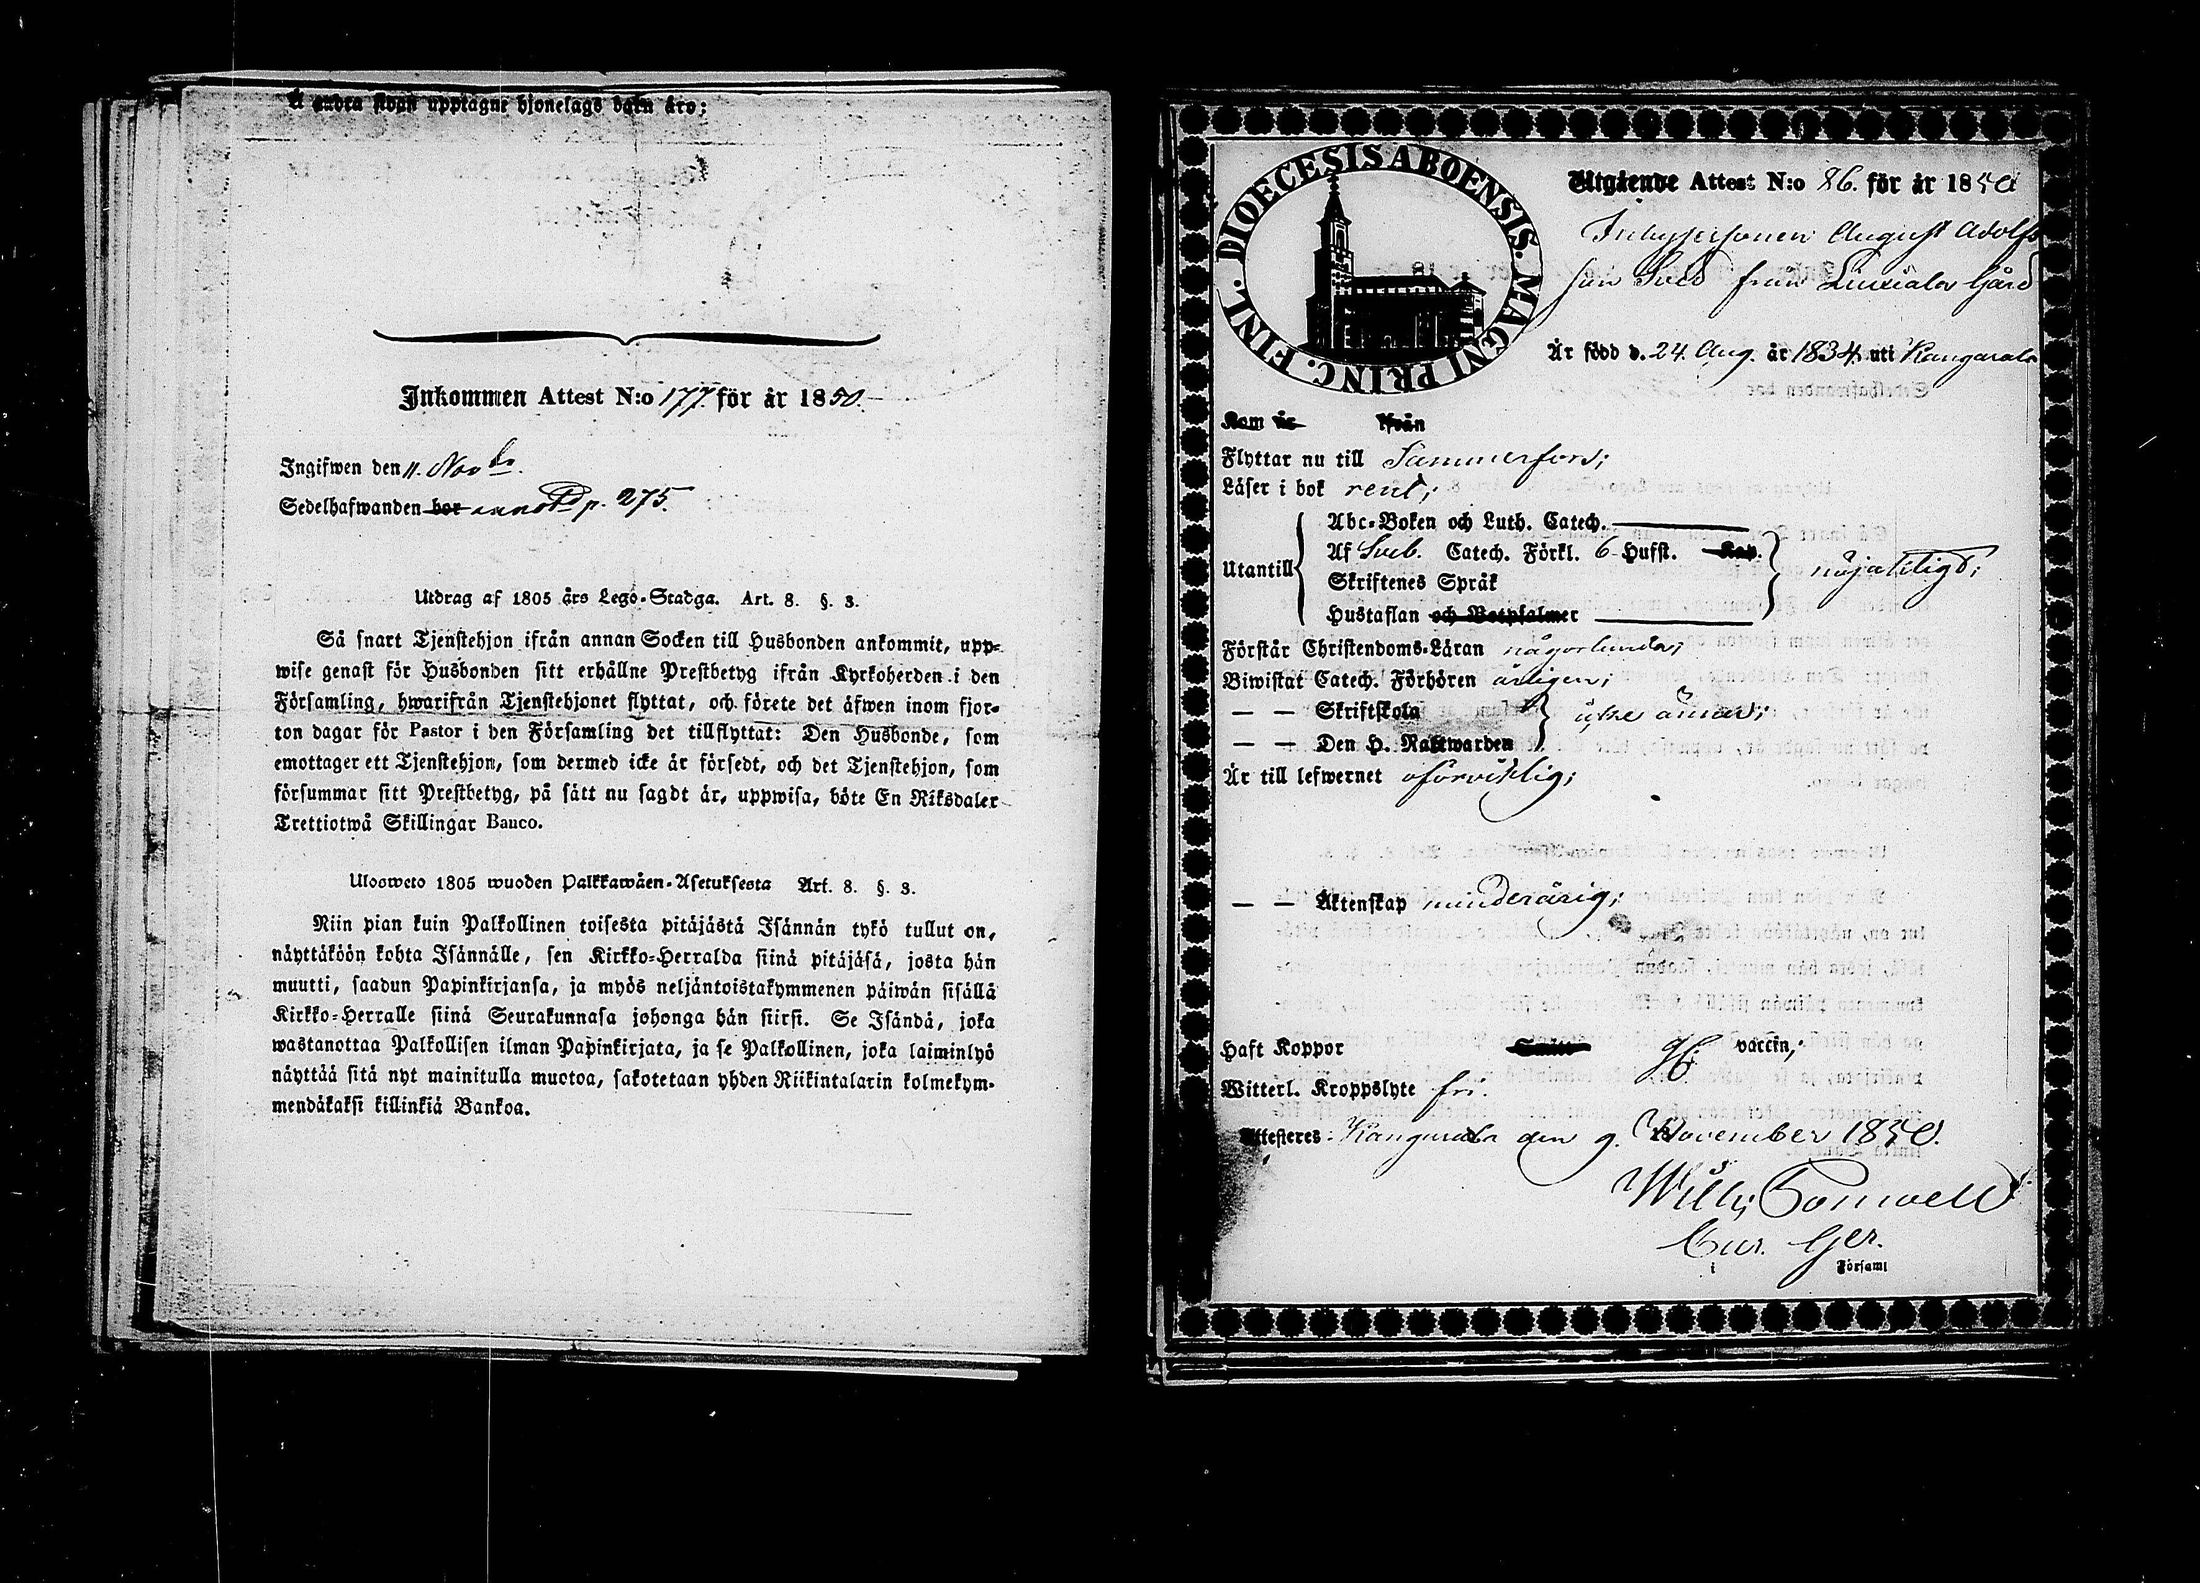 Å andra sidan upptagne hjonelags barn äro:
Inkommen Attest N:o 177. för år 1850.
Ingifwen den 11. Nov br.
Sedelhafwanden bor annot p. 275.
Utdrag af 1805 års Lego-Stadga. Art. 8. §. 3.
Så snart Tjenstehjon ifrån annan Socken till Husbonden ankommit, upp-
wise genast för Husbonden sitt erhållne Prestbetyg ifrån Kyrkoherden i den
Församling, hwarifrån Tjenstehjonet flyttat, och förete det äfwen inom fjor-
ton dagar för Pastor i den Församling det tillflyttat: Den Husbonde, som
emottager ett Tjenstehjon, som dermed icke är försedt, och det Tjenstehjon, som
försummar sitt Prestbetyg, på sätt nu sagdt är, uppwisa, böte En Riksdaler
Trettiotwå Skillingar Banco.
Ulosweto 1805 wuoden Palkkawäen-Asetuksesta Art. 8. §. 3.
Niin pian kuin Palkollinen toisesta pitäjästä Isännän tykö tullut on,
näyttäköön kohta Isännälle, sen Kirkko-Herralda siinä pitäjäsä, josta hän
muutti, saadun Papinkirjansa, ja myös neljäntoistakymmenen päiwän sisällä
Kirkko-Herralle siinä Seurakunnasa johonga hän siirsi. Se Isändä, joka
wastanottaa Palkollisen ilman Papinkirjata, ja se Palkollinen, joka laiminlyö
näyttää sitä nyt mainitulla muotoa, sakotetaan yhden Riikintalarin kolmekym-
mendäkaksi killinkiä Bankoa.
DIOECESIS ABOENSIS. MAGNI PRINC. FINL.
Utgående Attest N:o 86. för år 1850
Inhysesonen August Adolfs
son Sved från Liuxiala Gård
Är född d. 24. Aug. år 1834. uti Kangasala
Kom år ifrån
Flyttar nu till Tammerfors;
Läser i bok rent;
Utantill
Abc-Boken och Luth. Catech.
Af Sveb. Catech. Förkl. 6 Hufst. Kap.
Skriftenes Språk
Hustaflan och Botpsalmer
nöjaktligt;
Förstår Christendoms-Läran någorlunda;
Biwistat Catech. Förhören årligen;
— — Skriftskola
— — Den H. Nattwarden
icke ännu;
Är till lefwernet oförvitlig;
— — Äktenskap minderårig;
Haft Koppor vaccin;
Witterl. Kroppslyte fri.
Attesteres: Kangasala den 9. November 1850.
Cur. Ger.
i Församl